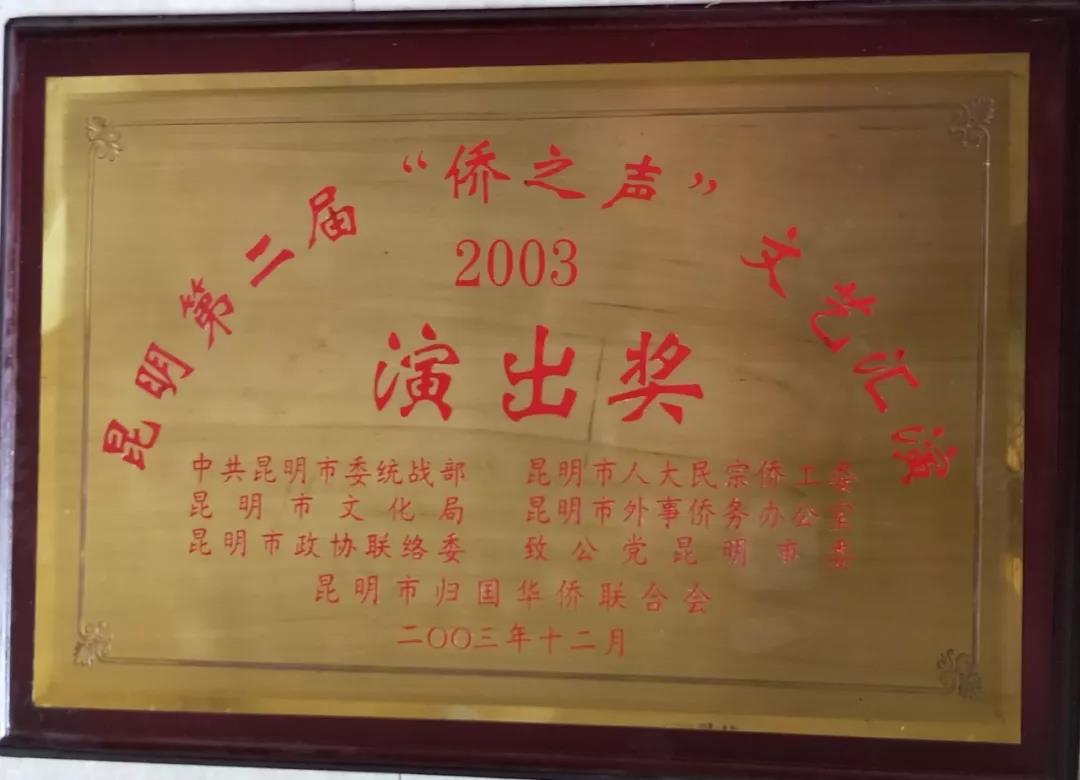 昆明第二届“侨之声”文艺汇演
2003
演出奖
中共昆明市委统战部 昆明市人大民宗侨工委
昆明市文化局 昆明市外事侨务办公室
昆明市政协联络委 致公党昆明市委
昆明市归国华侨联合会
二〇〇三年十二月